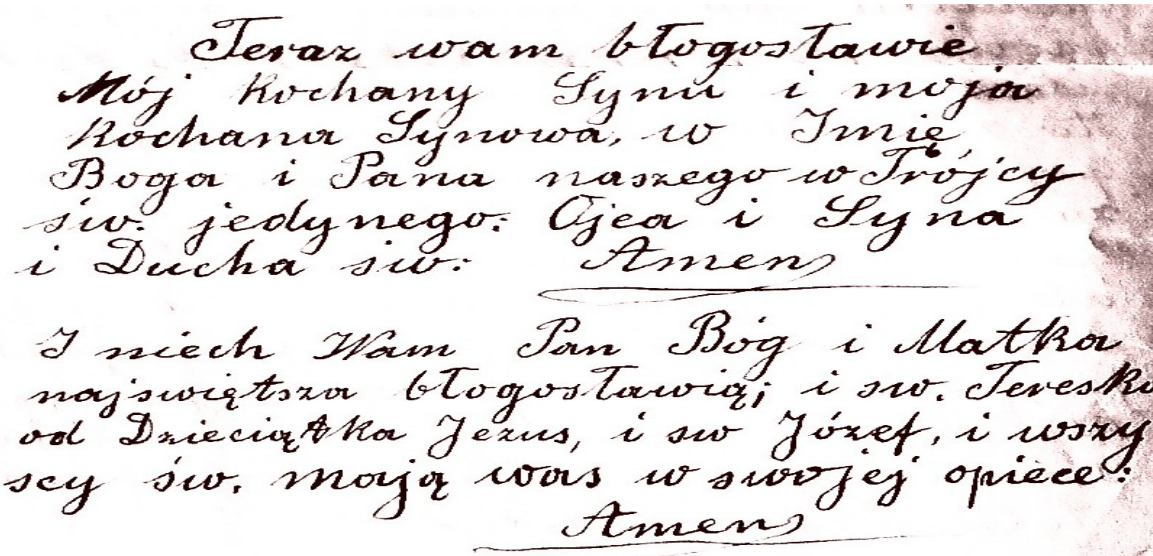 Teraz wam błogosławie
Mój kochany Synu i moja
kochana Synowa, w Imię
Boga i Pana naszego w Trójcy
św. jedynego: Ojca i Syna
i Ducha św: Amen
I niech Wam Pan Bóg i Matka
najswiętsza błogosławią; i sw. Tereska
od Dzieciątka Jezus, i sw Józef, i wszy
scy św. mają was w swojej opiece:
Amen